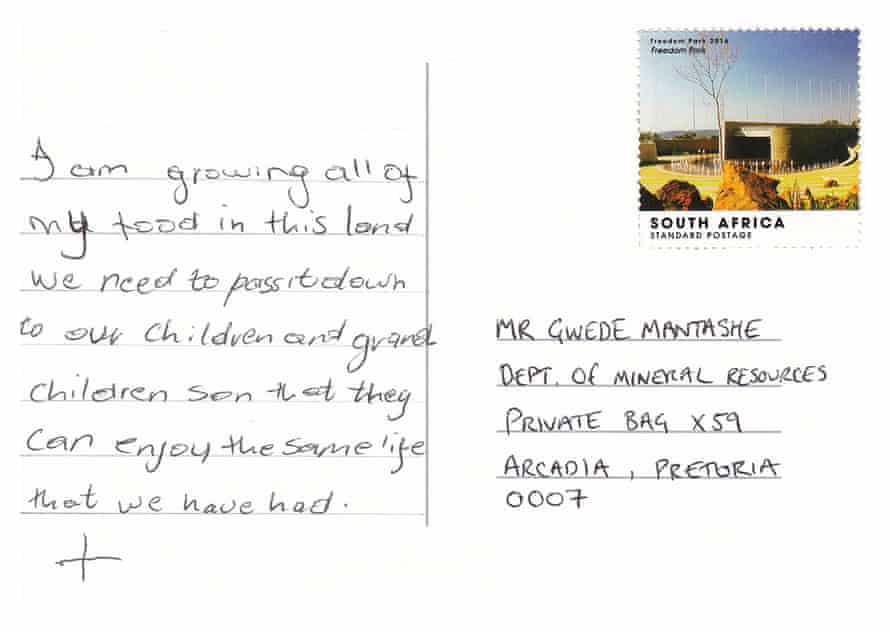 I am growing all of
my food in this land
we need to pass it down
to our children and grand
children son that they
can enjoy the same life
that we have had.
Freedom Park 2016
Freedom Park
SOUTH AFRICA
STANDARD POSTAGE
MR GWEDE MANTASHE
DEPT. OF MINERAL RESOURCES
PRIVATE BAG X59
ARCADIA, PRETORIA
0007